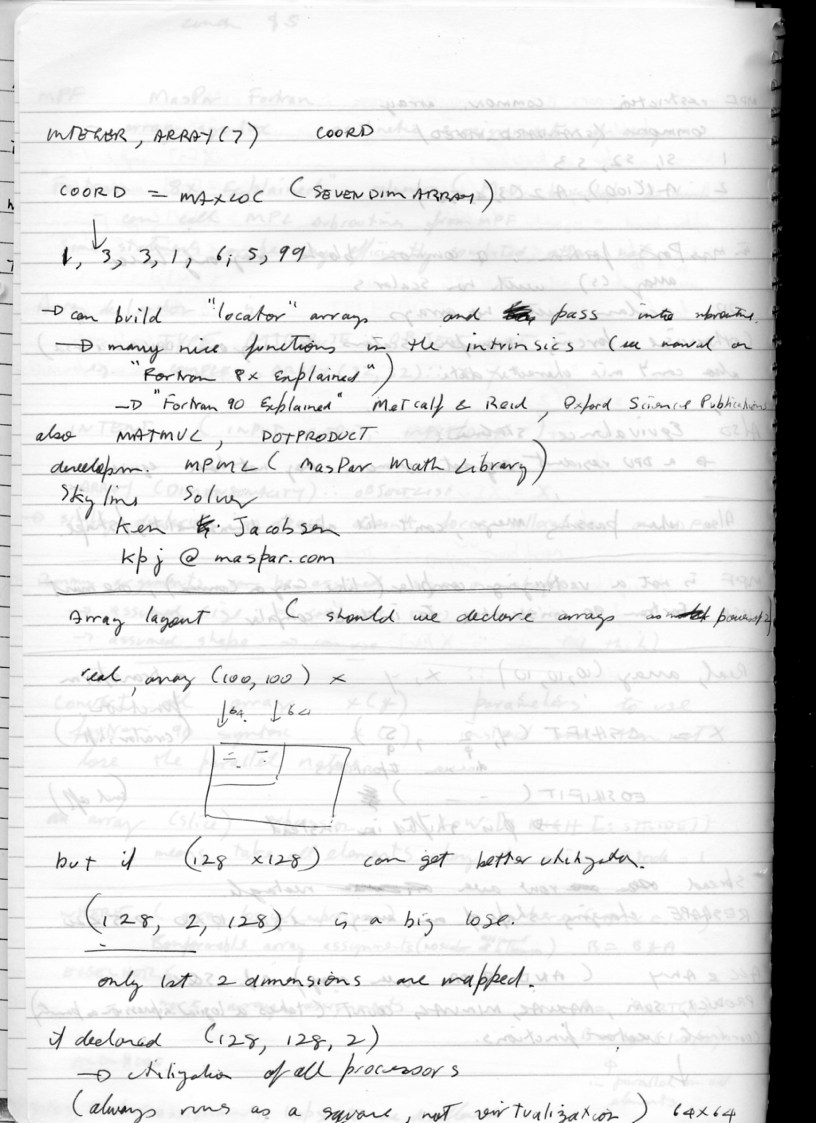 INTEGER, ARRAY(7) COORD
COORD = MAXLOC (SEVENDIMARRAY)
1, 3, 3, 1, 6, 5, 99
→ can build "locator" arrays and pass into subroutine.
→ many nice functions in the intrinsics (see manual or
"Fortran 8x Explained")
→ "Fortran 90 Explained" Metcalf & Reid, Oxford Science Publications
also MATMUL, DOTPRODUCT
developm. MPML (MasPar Math Library)
Skyline Solver
Ken Jacobsen
kpj @ maspar.com
Array layout (should we declare arrays as power of 2)
real, array (100,100) x
↓64 ↓64
but if (128 x128) can get better utilization.
(128, 2, 128) is a big lose.
only 1st 2 dimensions are mapped.
if declared (128, 128, 2)
→ utilization of all processors
(always runs as a square, not virtualization) 64x64